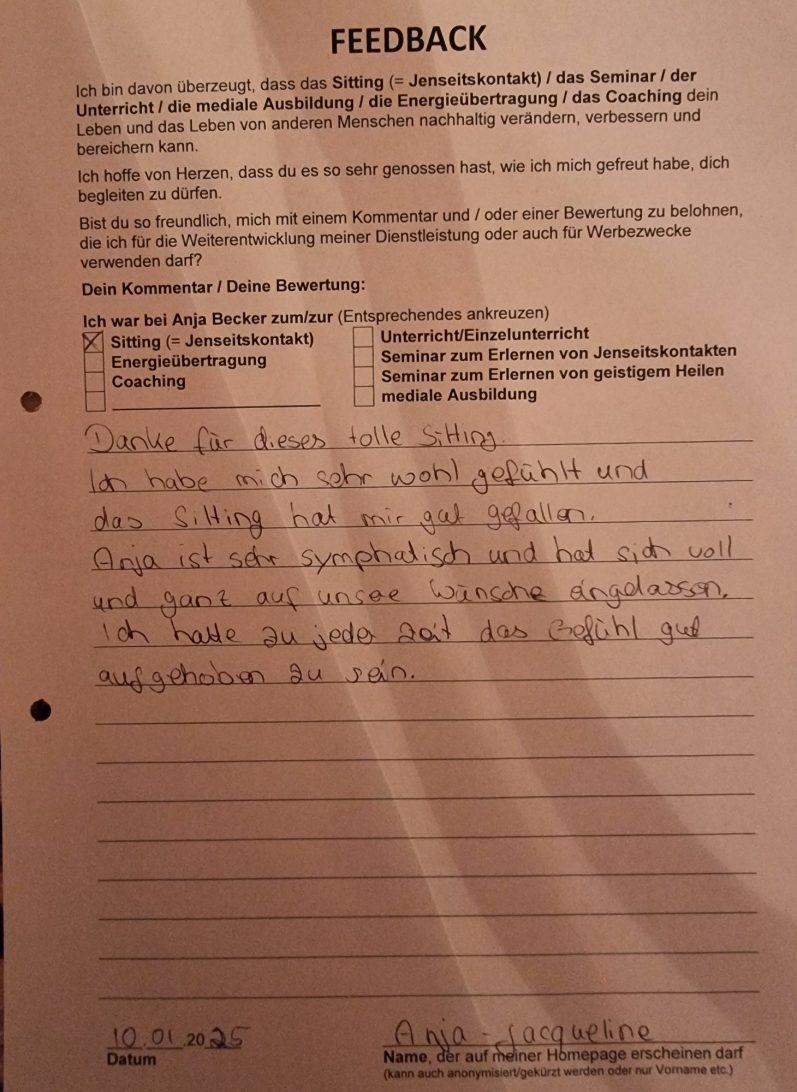 FEEDBACK
Ich bin davon überzeugt, dass das Sitting (= Jenseitskontakt) / das Seminar / der
Unterricht / die mediale Ausbildung / die Energieübertragung / das Coaching dein
Leben und das Leben von anderen Menschen nachhaltig verändern, verbessern und
bereichern kann.
Ich hoffe von Herzen, dass du es so sehr genossen hast, wie ich mich gefreut habe, dich
begleiten zu dürfen.
Bist du so freundlich, mich mit einem Kommentar und / oder einer Bewertung zu belohnen,
die ich für die Weiterentwicklung meiner Dienstleistung oder auch für Werbezwecke
verwenden darf?
Dein Kommentar / Deine Bewertung:
Ich war bei Anja Becker zum/zur (Entsprechendes ankreuzen)
Sitting (= Jenseitskontakt)
Energieübertragung
Coaching
Unterricht/Einzelunterricht
Seminar zum Erlernen von Jenseitskontakten
Seminar zum Erlernen von geistigem Heilen
mediale Ausbildung
Danke für dieses tolle Sitting.
Ich habe mich sehr wohl gefühlt und
das Sitting hat mir gut gefallen.
Anja ist sehr symphatisch und hat sich voll
und ganz auf unsee Wünsche eingelassen.
Ich hatte zu jeder Zeit das Gefühl gut
aufgehoben zu sein.
10.01.2025
Datum
Anja-Jacqueline
Name, der auf meiner Homepage erscheinen darf
(kann auch anonymisiert/gekürzt werden oder nur Vorname etc.)